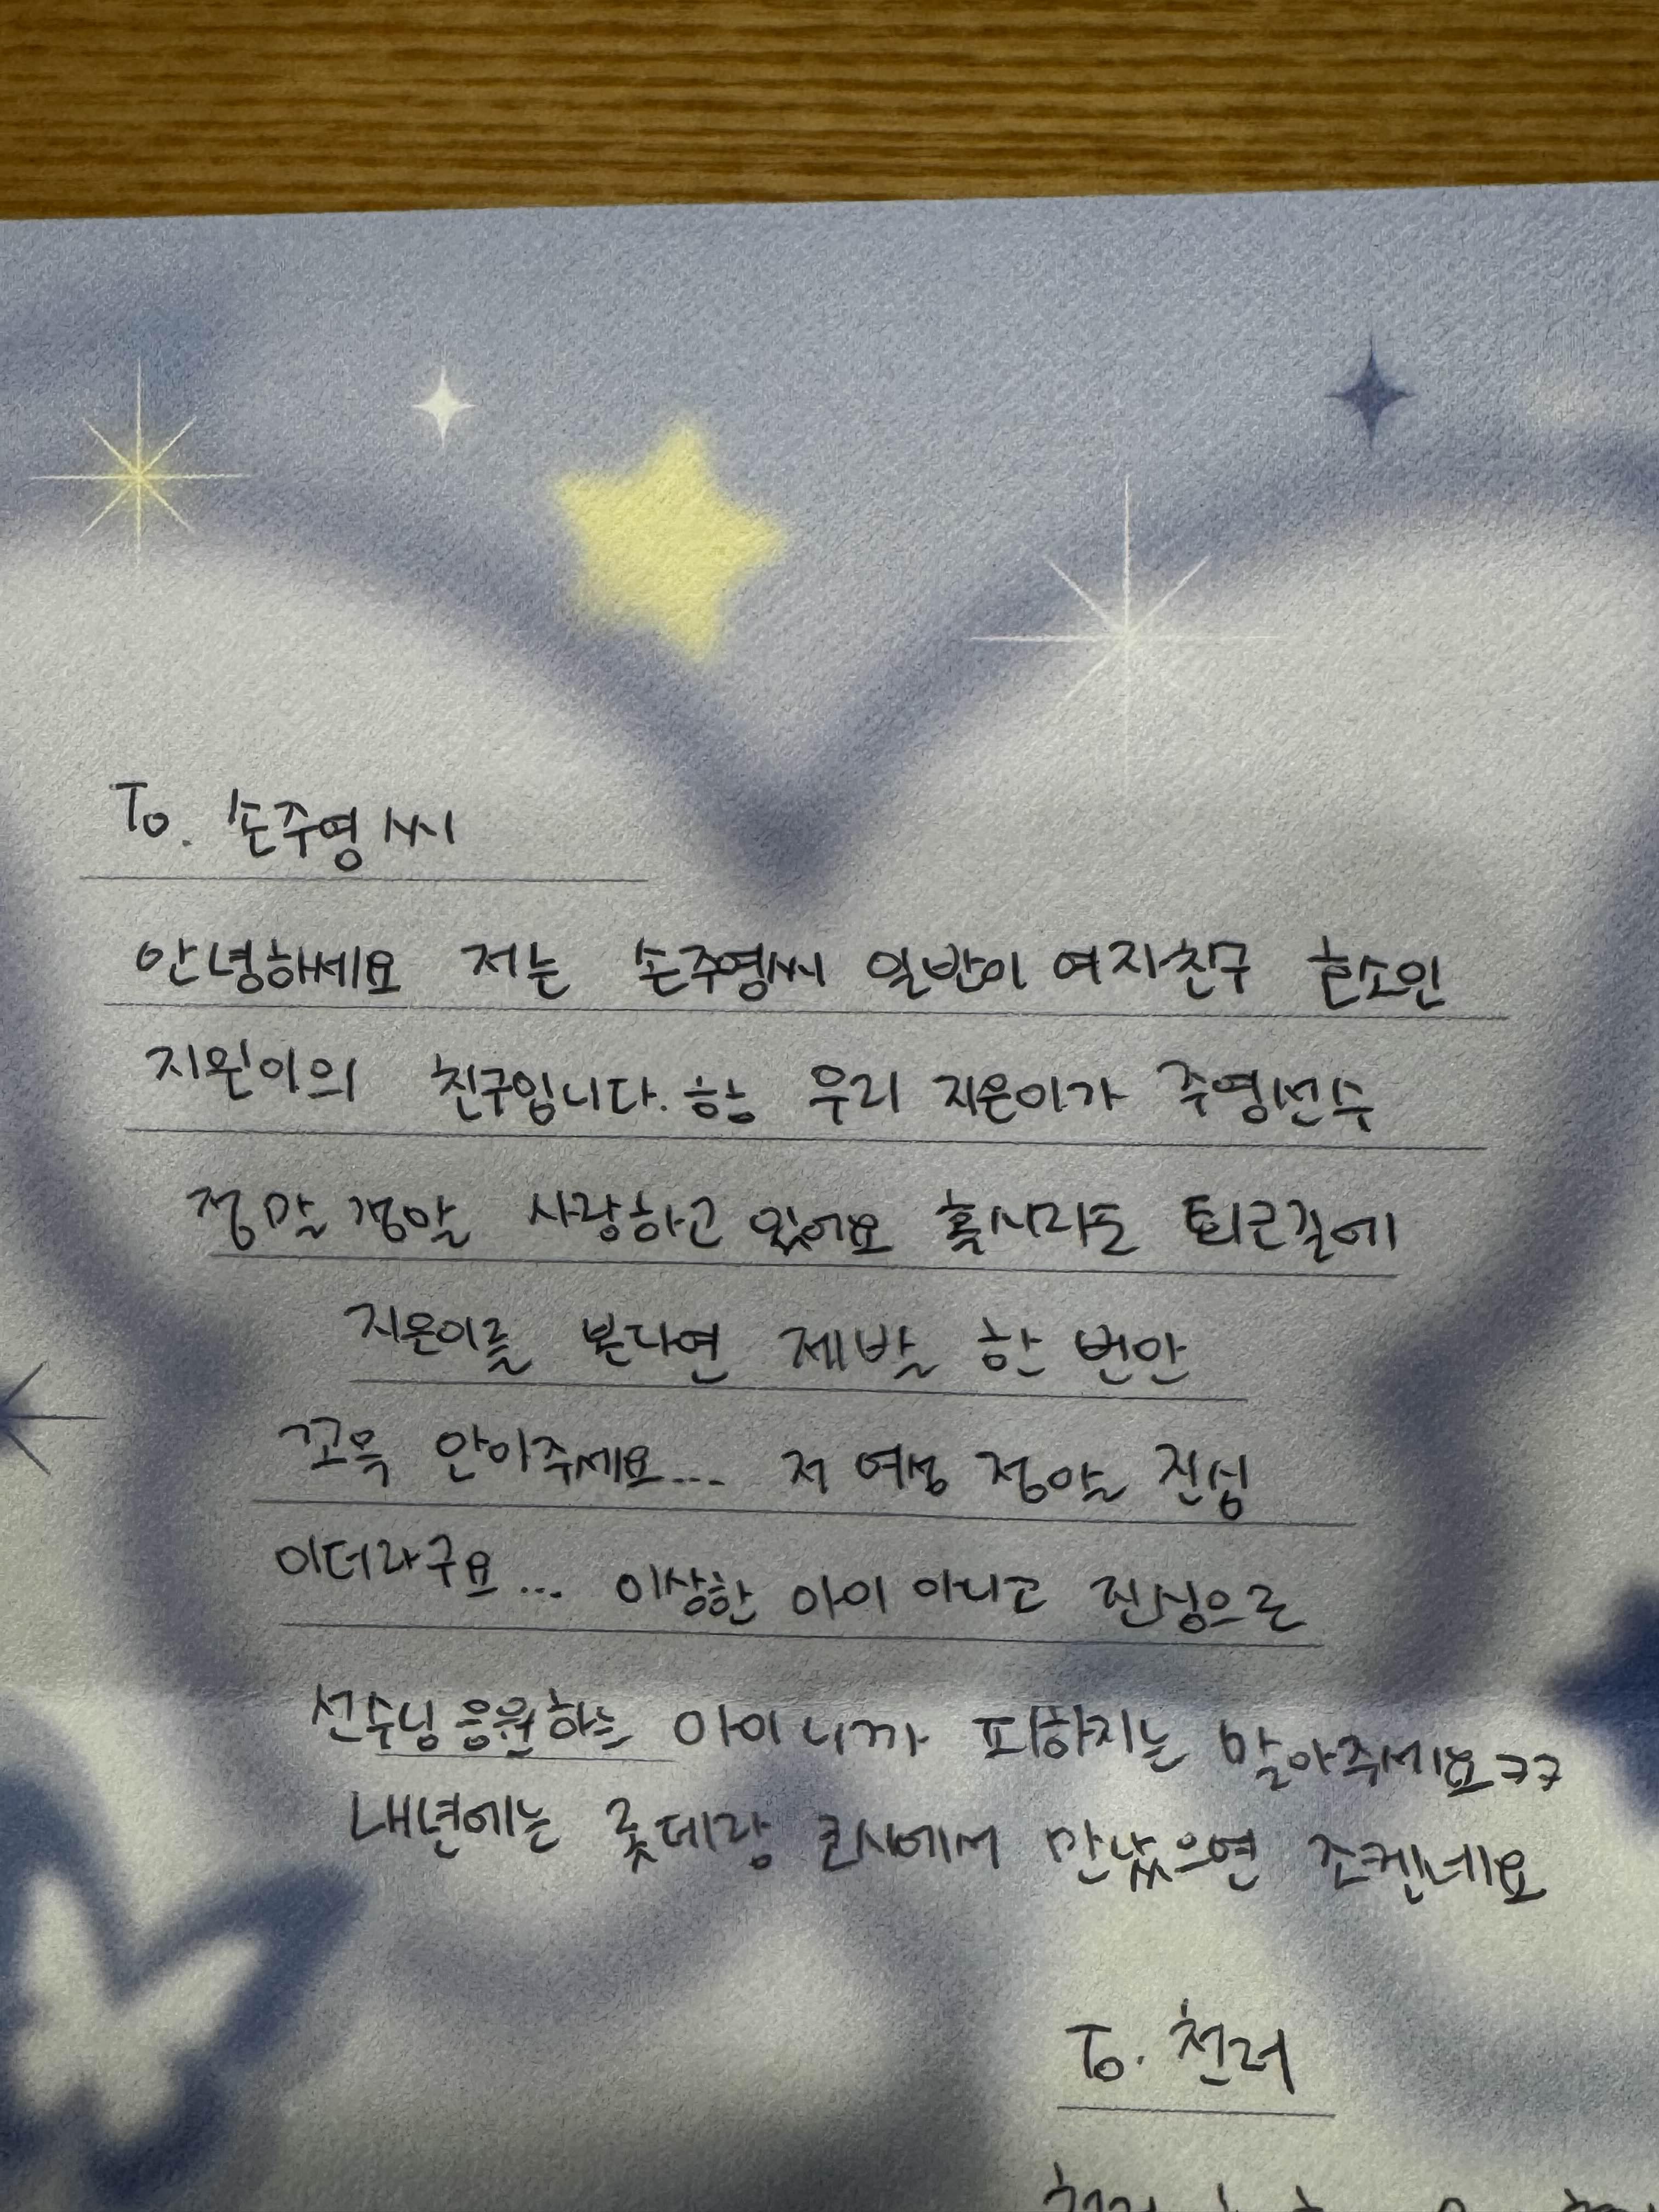 To. 손주영씨
안녕하세요 저는 손주영씨 일반이 여자친구
지원이의 친구입니다. 우리 지은이가 주영선수
정말 정말 사랑하고 있어요 혹시라도 퇴근길에
지은이를 본다면 제발 한 번만
꼬옥 안아주세요... 저 여성 정말 진심
이더라구요... 이상한 아이 아니고 진심으로
선수님 응원하는 아이니까 피하지는 말아주세요ㅋㅋ
내년에는 롯데랑 코시에서 만났으면 조켄네요
To. 천러